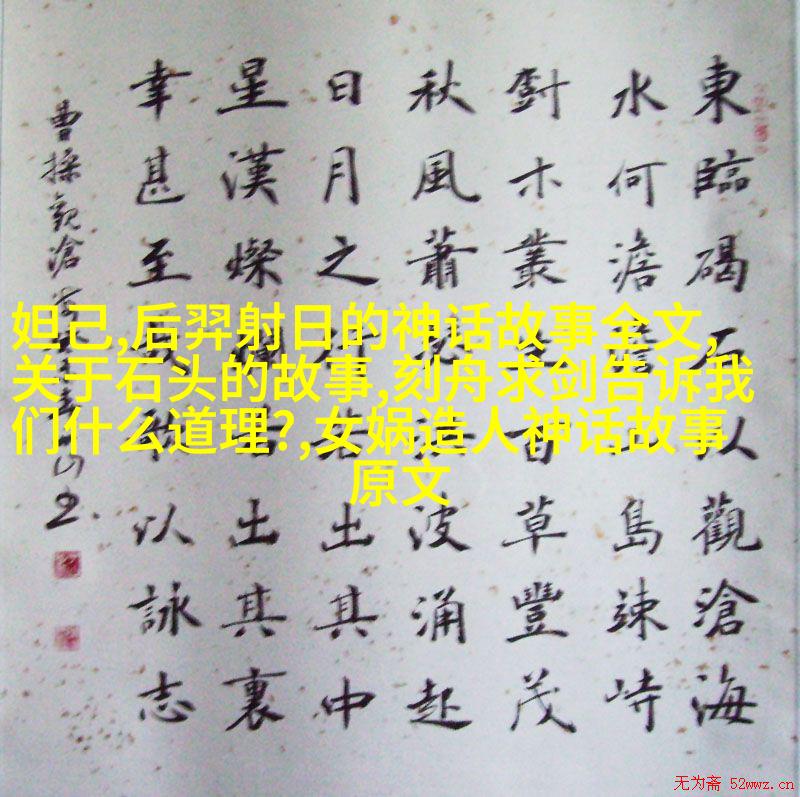 東臨碣石以觀滄海
水何澹澹山島竦峙
木叢生百草豐茂
秋風蕭瑟洪波涌起
日月之行若出其中
星漢燦爛若出其裏
幸甚至哉歌以詠志
曹操觀滄海
妲己,后羿射日的神话故事全文,
关于石头的故事,刻舟求剑告诉我
们什么道理?,女娲造人神话故事
原文
无为斋 52wwz.cn